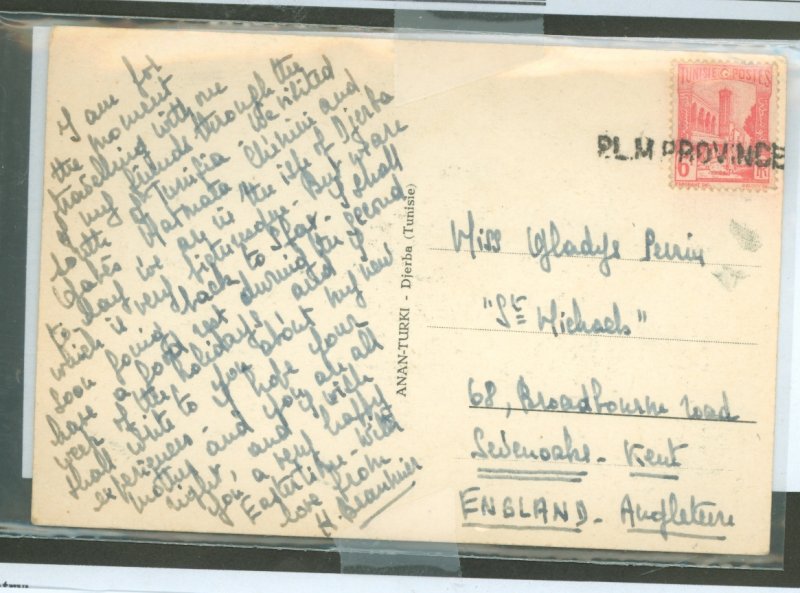 I am for
the moment
travelling with one
of my friends through the
South of Tunisia. We visited
Gabès Matmata Chenini and
to day we are in the isle of Djerba
which is very picturesque. But we are
soon going back to Sfax. I shall
have a good rest during the second
week of the holidays, and I
shall write to you about my new
experiences. I hope your
mother and you are all
right, and I wish
you a very happy
Easter time. With
love from
H. Beaumier
ANAN-TURKI - Djerba (Tunisie)
TUNISIE POSTES
6
P.L.M PROVINCE
Miss Gladys Perrin
"St Michaels"
68, Broadbourne road
Sevenoaks - Kent
ENGLAND - Angleterre